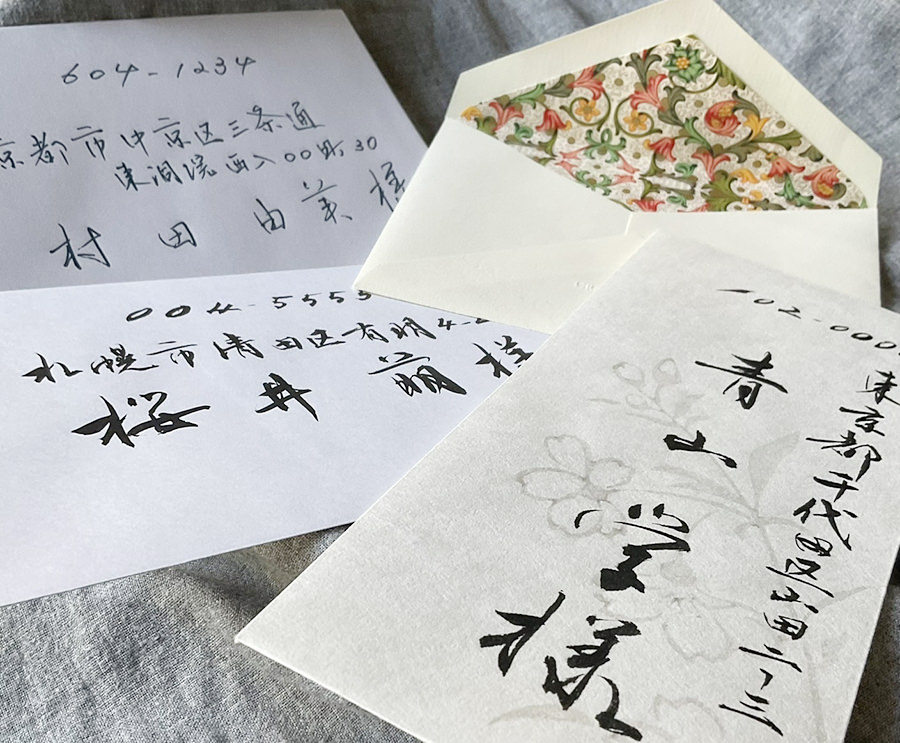 604-1234
京都市中京区三条通
東洞院西入00町30
村田由美様
004-5555
札幌市清田区有明4-2
桜井萌様
102-000
東京都千代田区富田二-三
青山堂様